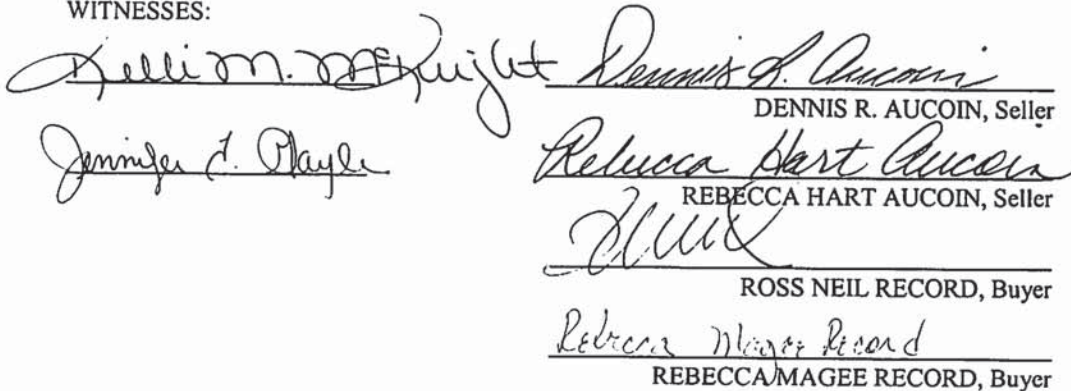 WITNESSES:
Kelli M. McKnight
Dennis R. Aucoin
DENNIS R. AUCOIN, Seller
Jennifer
Rebecca Hart Aucoin
REBECCA HART AUCOIN, Seller
ROSS NEIL RECORD, Buyer
Rebecca Magee Record
REBECCA MAGEE RECORD, Buyer